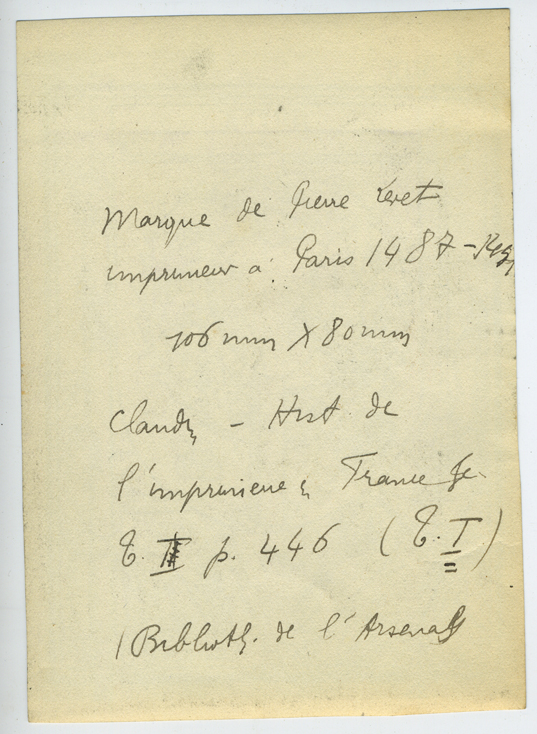 Marque de Pierre Levet
imprimeur à Paris 1487 -
106 mm X 80 mm
Claudin - Hist de
l'imprimerie en France
T. II p. 446 (T. I)
(Biblioth. de l'Arsenal)